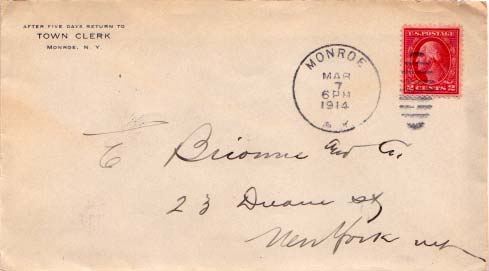 AFTER FIVE DAYS RETURN TO
TOWN CLERK
MONROE, N. Y.
MONROE
MAR
7
6 PM
1914
N.Y.
U.S. POSTAGE
2 CENTS 2
23 Duane St
New York